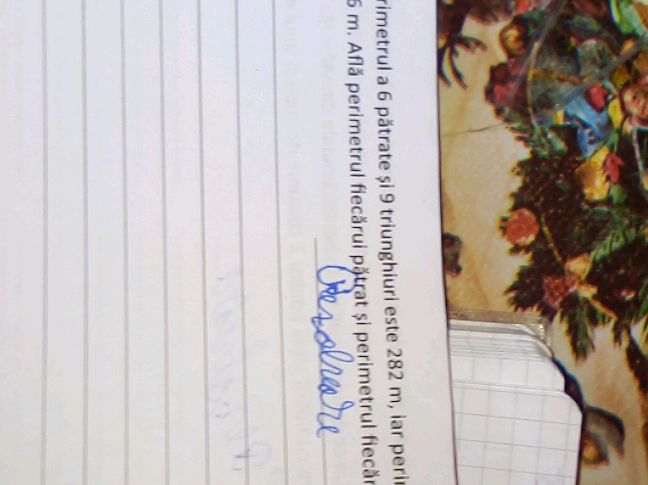 rimetrul a 6 pătrate și 9 triunghiuri este 282 m, iar perir
6 m. Află perimetrul fiecărui pătrat și perimetrul fiecăr
Rezolvare